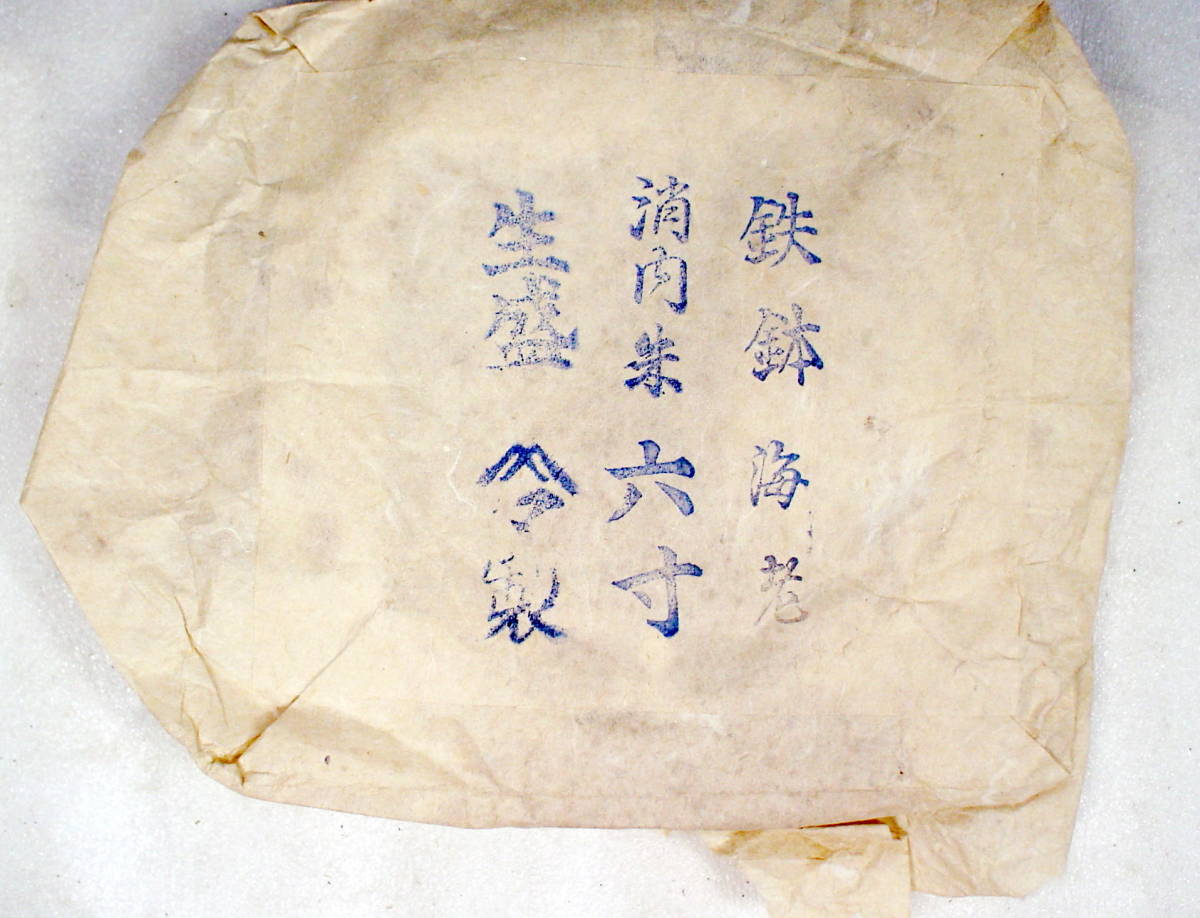 鉄鉢 海老
消内朱 六寸
生盛 製